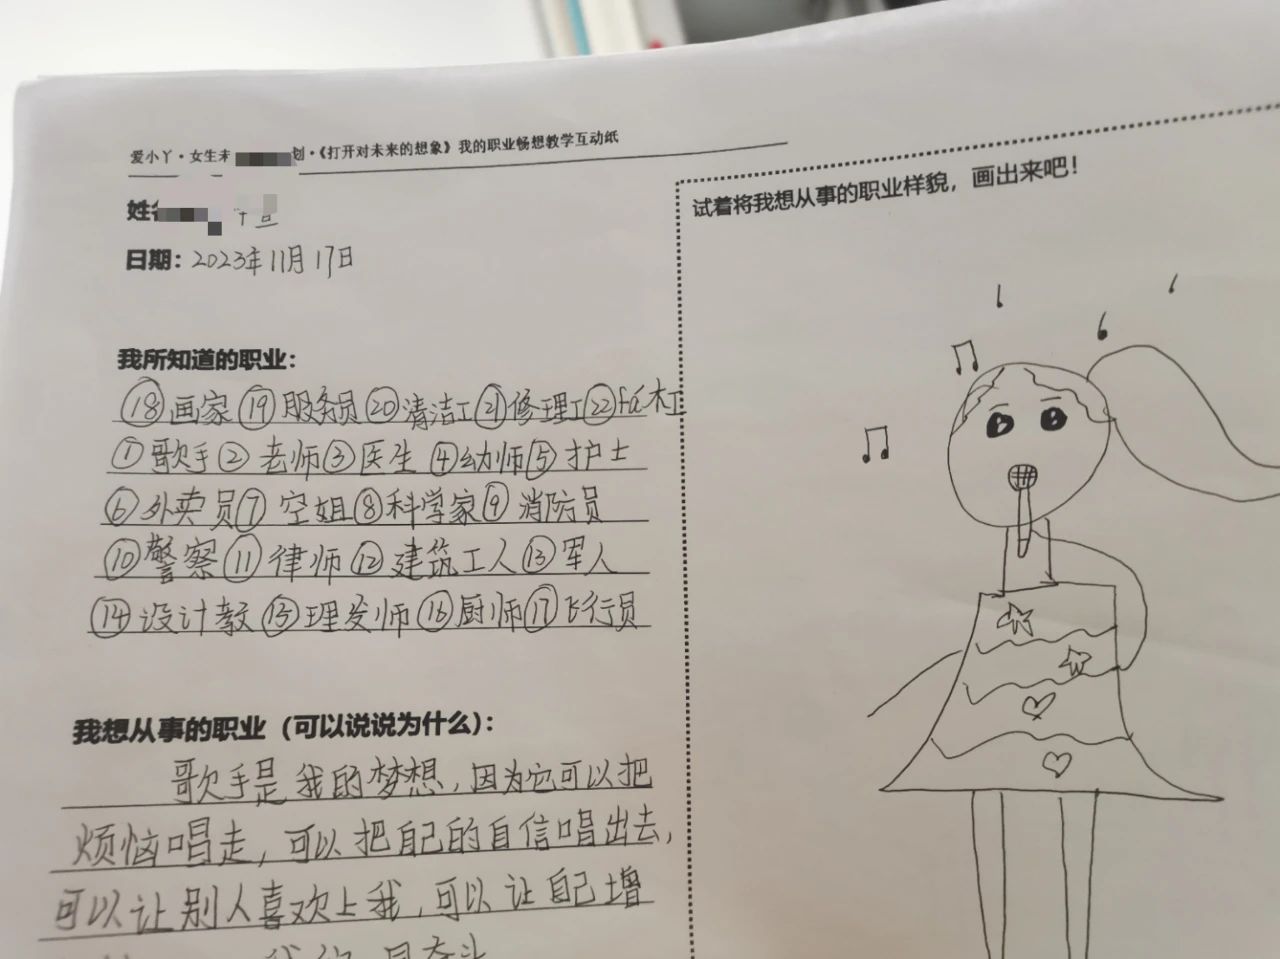 爱小丫·女生未 划·《打开对未来的想象》我的职业畅想教学互动纸
姓
日期：2023年11月17日
我所知道的职业：
⑱画家⑲服务员⑳清洁工㉑修理工㉒fá木工
①歌手②老师③医生④幼师⑤护士
⑥外卖员⑦空姐⑧科学家⑨消防员
⑩警察⑪律师⑫建筑工人⑬军人
⑭设计教⑮理发师⑯厨师⑰飞行员
我想从事的职业（可以说说为什么）：
歌手是我的梦想，因为它可以把
烦恼唱走，可以把自己的自信唱出去，
可以让别人喜欢上我，可以让自己增
试着将我想从事的职业样貌，画出来吧！